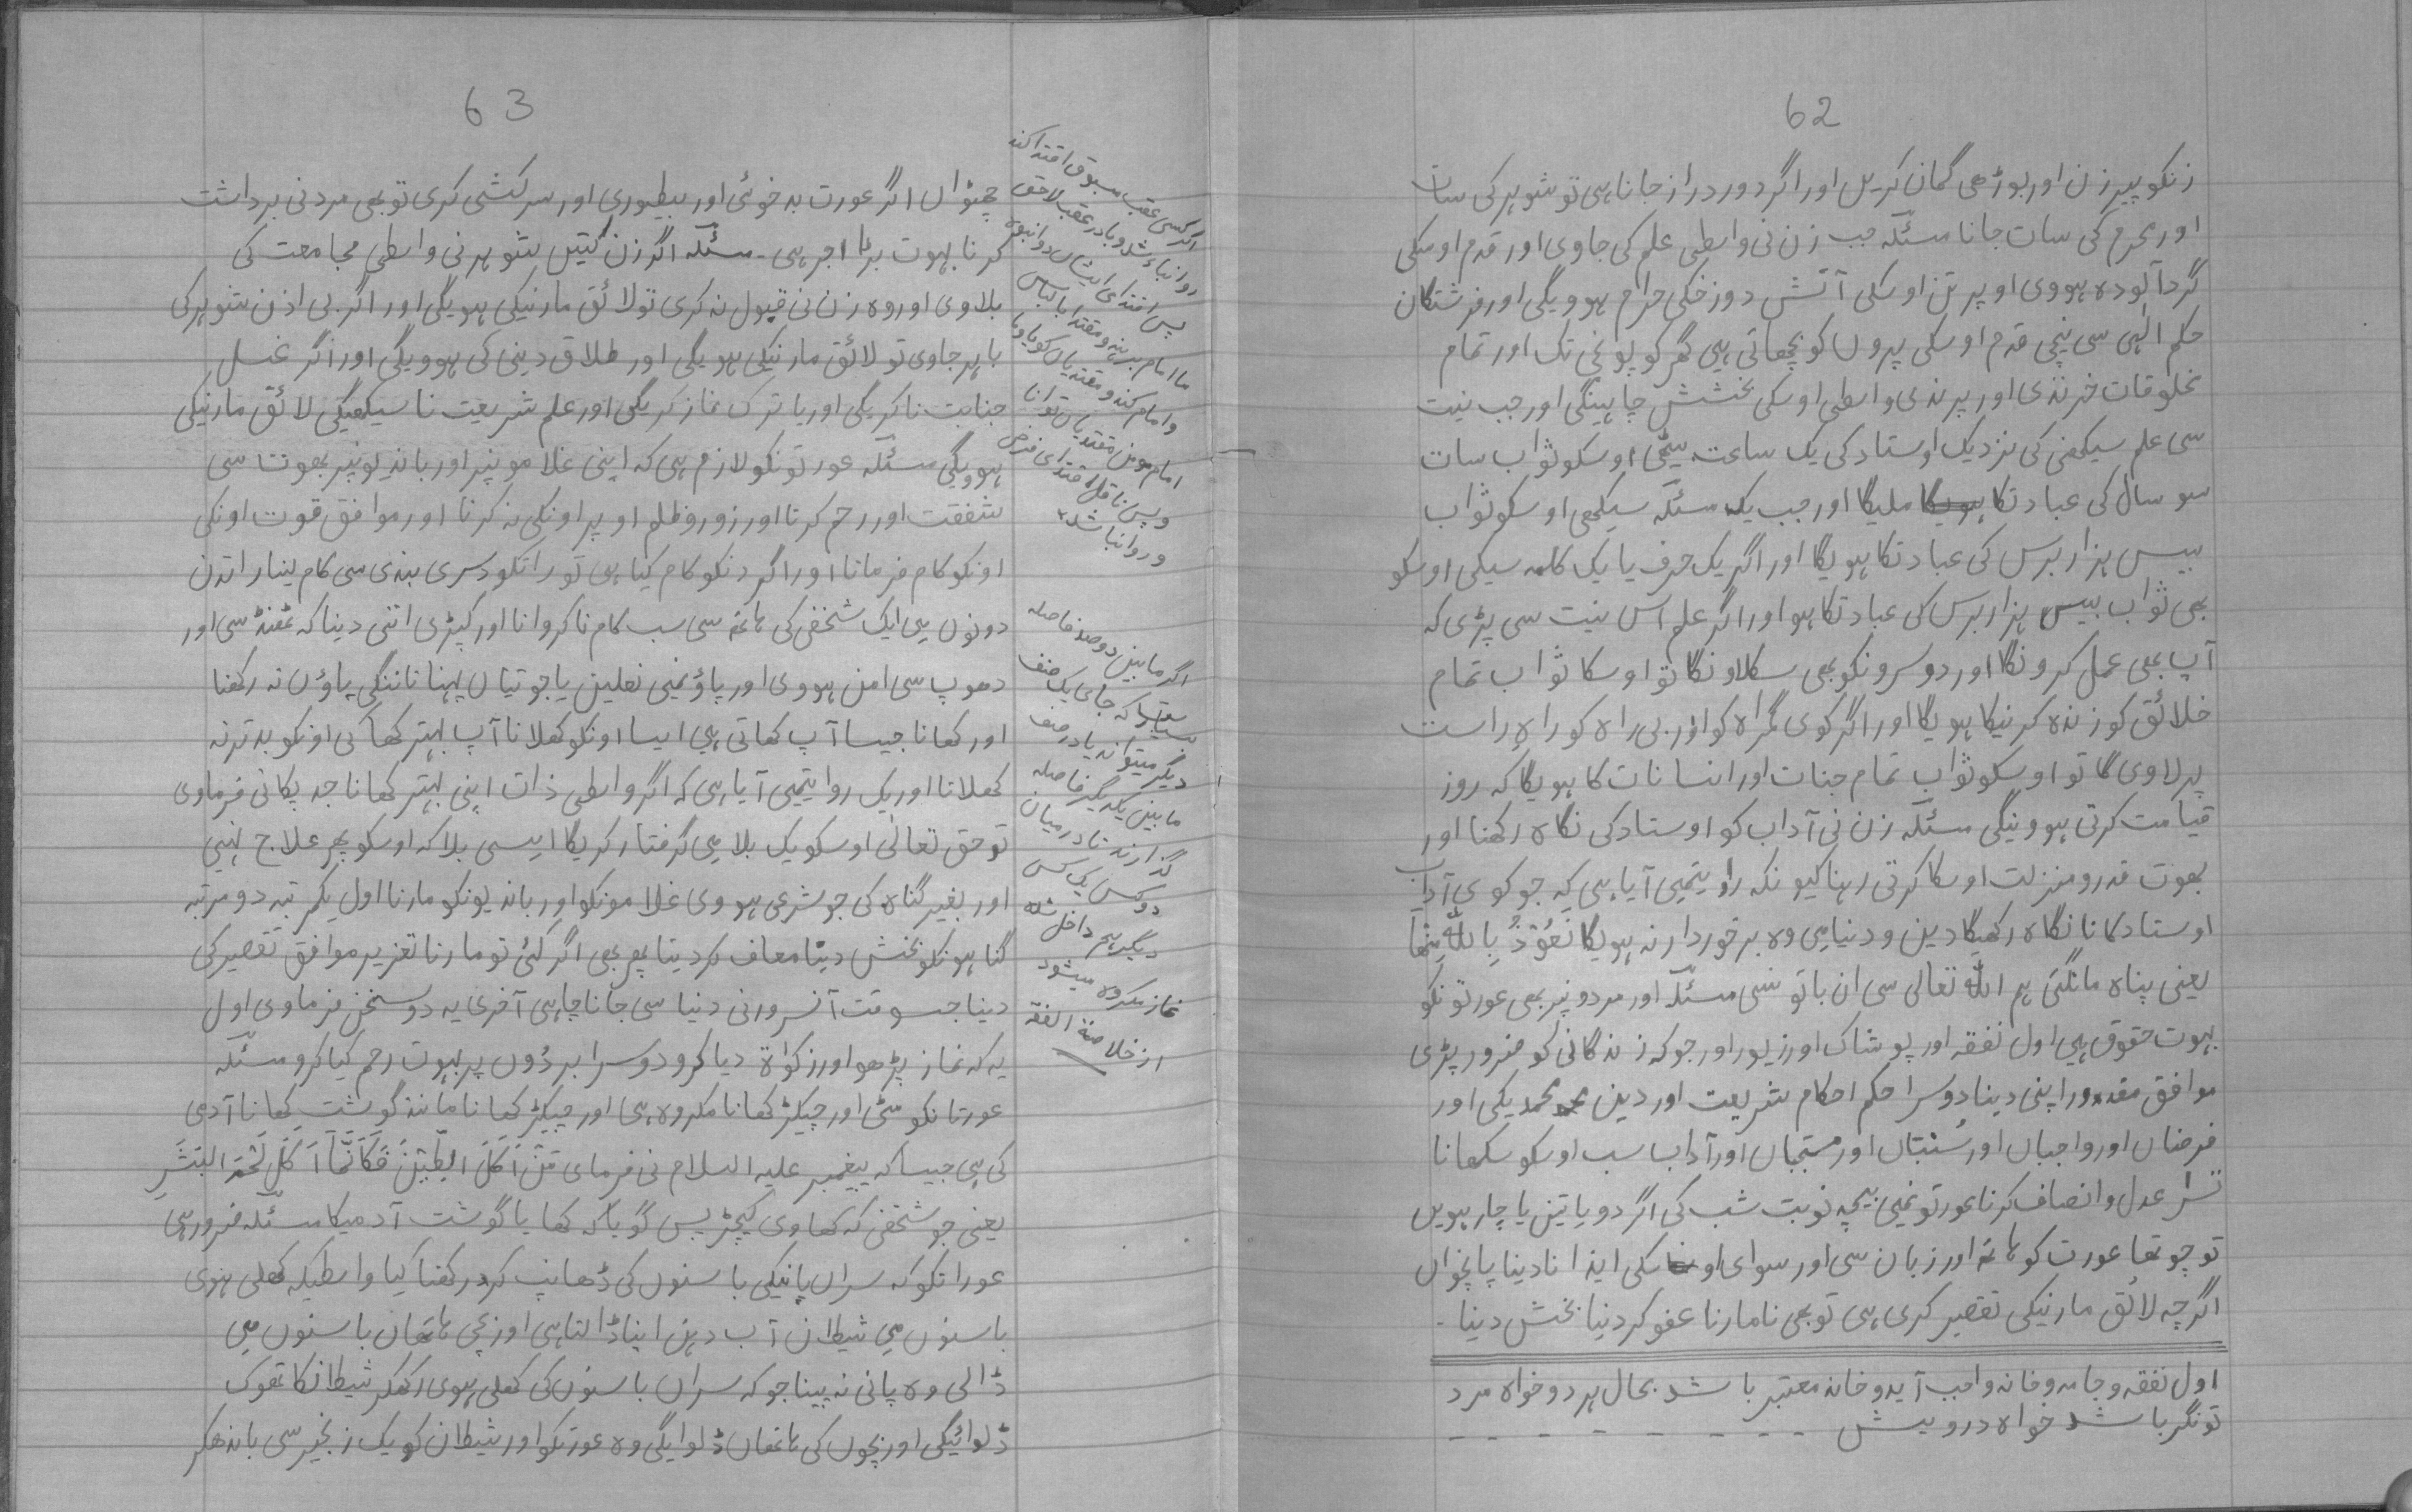 62
زنکو پیر زن اور بوڑھی گمان کریں اور اگر دور دراز جانا ہی تو شوہر کی سات
اور محرم کی سات جانا مسئلہ جب زن نی واسطی علم کی جاوی اور قدم اوسکی
گرد آلودہ ہووی اوپر تن اوسکی آتش دوزخکی حرام ہوویگی اور فرشتگان
حکم الٰہی سی نیچی قدم اوسکی پروں کو بچھاتی ہیں گھر کو پونچی تک اور تمام
مخلوقات خزندی اور پرندی واسطی اوسکی بخشش چاہینگی اور جب نیت
سی علم سیکھنی کی نزدیک اوستاد کی یک ساعت بیٹھی اوسکو ثواب سات
سو سال کی عبادتکا ملیگا اور جب یک مسئلہ سیکھی اوسکو ثواب
بیس ہزار برس کی عبادتکا ہویگا اور اگر یک حرف یا یک کلمہ سیکی اوسکو
بھی ثواب بیس ہزار برس کی عبادتکا ہو اور اگر علم اس نیت سی پڑی کہ
آپ بھی عمل کرونگا اور دوسرونکو بھی سکلاونگا تو اوسکا ثواب تمام
خلائق کو زندہ کرنیکا ہویگا اور اگر کوی گمراہ کو اور بی راہ کو راہِ راست
پر لاوی گا تو اوسکو ثواب تمام جنات اور انسانات کا ہویگا کہ روز
قیامت کرتی ہووینگی مسئلہ زن نی آداب کو اوستاد کی نگاہ رکھنا اور
بھوت قدر و منزلت اوسکا کرتی رہنا کیونکہ روایتمیں آیا ہی کہ جو کوی آداب
اوستاد کا نا نگاہ رکھیگا دین و دنیا میں وہ برخوردار نہ ہویگا نَعُوْذُ بِاللّٰہِ مِنْہَا
یعنی پناہ مانگتی ہم اللّٰہ تعالی سی ان باتونسی مسئلہ اور مردونپر بھی عورتونکو
بہوت حقوق ہیں اول نفقہ اور پوشاک اور زیور اور جو کہ زندگانی کو ضرور پڑی
موافق مقدور اپنی دینا دوسرا حکم احکام شریعت اور دین محمدیکی اور
فرضاں اور واجباں اور سُنتاں اور مستحباں اور آداب سب اوسکو سکھانا
تسرا عدل و انصاف کرنا عورتونمیں بیچہ نوبت شب کی اگر دو یا تین یا چار ہویں
تو چوتھا عورت کو ہاتھ اور زبان سی اور سوای اوسکی ایذا نا دینا پانچواں
اگرچہ لائق مارنیکی تقصیر کری ہی تو بھی نا مارنا عفو کر دینا بخش دینا۔
اول نفقہ و جامہ و خانہ واجب آید و خانہ معتبر باشد بحال ہر دو خواہ مرد
تونگر باشد خواہ درویش
63
چھٹواں اگر عورت بدخوئی اور بیطوری اور سرکشی کری تو بھی مرد نی برداشت
کرنا بہوت بڑا اجر ہی۔ مسئلہ اگر زن کتیں شوہر نی واسطی مجامعت کی
بلاوی اور وہ زن نی قبول نہ کری تو لائق مارنیکی ہویگی اور اگر بی اذن شوہر کی
باہر جاوی تو لائق مارنیکی ہویگی اور طلاق دینی کی ہوویگی اور اگر غسل
جنابت نا کریگی اور یا ترک نماز کریگی اور علم شریعت نا سیکھیگی لائق مارنیکی
ہوویگی مسئلہ عورتونکو لازم ہی کہ اپنی غلامونپر اور باندیونپر بھوت سی
شفقت اور رحم کرتا اور زور و ظلم اوپر اونکی نہ کرنا اور موافق قوت اونکی
اونکو کام فرمانا اور اگر دنکو کام کیا ہی تو راتکو دسری بندی سی کام لینا راتدن
دونوں میں ایک شخص کی ہاتھ سی سب کام نا کروانا اور کپڑی اتنی دینا کہ ٹھنڈ سی اور
دھوپ سی امن ہووی اور پاؤنمیں نعلین یا جوتیاں پہنانا ننگی پاؤں نہ رکھنا
اور کھانا جیسا آپ کھاتی ہیں ایسا اونکو کھلانا آپ بہتر کھا کی اونکو بدتر نہ
کھلانا اور یک روایتمیں آیا ہی کہ اگر واسطی ذات اپنی بہتر کھانا جد پکانی فرماوی
تو حق تعالٰی اوسکو یک بلا میں گرفتار کریگا ایسی بلا کہ اوسکو پھر علاج نہیں
اور بغیر گناہ کی جو شرعی ہووی غلامونکو اور باندیونکو مارنا اول یکمرتبہ دو مرتبہ
گناہونکو بخش دینا معاف کر دینا پھر بھی اگر کئی تو مارنا تعزیر موافق تقصیر کی
دینا جسوقت آنسرور نی دنیا سی جانا چاہی آخری یہ دو سخن فرماوی اول
یہ کہ نماز پڑھو اور زکواۃ دیا کرو دوسرا بردُوں پر بہوت رحم کیا کرو مسئلہ
عورتانکو مٹی اور چیکڑ کھانا مکروہ ہی اور چیکڑ کھانا مانند گوشت کھانا آدمی
کی ہی جیسا کہ پیغمبر علیہ السلام نی فرمای مَنْ اَکَلَ الطِّیْنَ فَکَاَنَّمَا اَکَلَ لَحْمَ الْبَشَرِ
یعنی جو شخص کہ کھاوی کیچڑ پس گویا کہ کھایا گوشت آدمیکا مسئلہ ضرور ہی
عوراتکو کہ سراں پانیکی باسنوں کی ڈھانپ کر رکھنا کیا واسطیکہ کھلی ہوی
باسنوں میں شیطان آب دہن اپنا ڈالتا ہی اور بچی ہاتھاں باسنوں میں
ڈالی وہ پانی نہ پینا جو کہ سراں باسنوں کی کھلی ہوی رکھکر شیطانکا تھوک
ڈلوائیگی اور بچوں کی ہاتھاں ڈلوایگی وہ عورتکو اور شیطان کو یک زنجیر سی باندھکر
اگر کسی عقب مسبوق اقتدا کند
روا نباشد و یا در عقب لاحق
پس اقتدای ایشاں روا نبود
امام برہنہ و مقتدا بالباس
امام مومن مقتدیاں توانا
و پس ناقل اقتدای فرض
و روا نباشد
اگر مابین دو صد فاصلہ
کہ جای یک صف
دیگر میتواند یا در صف
مابین یکدیگر فاصلہ
گذارند تا درمیان
دو کس یک کس
دیگر ہم داخل شدہ
نماز مکروہ میشود
از خلاصۃ الفقہ